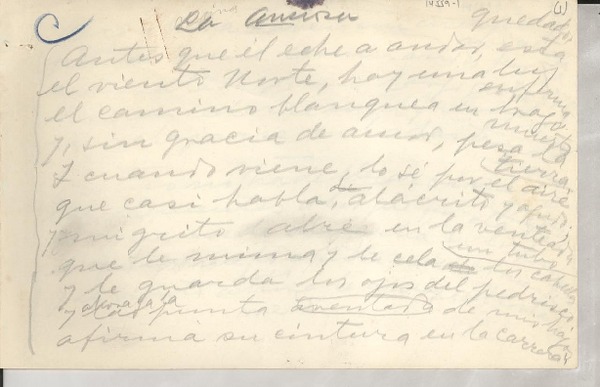 14559-1
(1)
La Ansiosa
quedado,
Antes que él eche a andar, está
el viento Norte, hay una luz enferma,
el camino blanquea en brazo muerto
y, sin gracia de amor, pesa la tierra.
Y cuando viene, lo sé por el aire
que casi habla, alácrito y agudo;
y mi grito abre en la ventea un tubo
que le mima y le cela los cabellos,
y le guarda los ojos del pedrisco.
y ahora la punta aventada de
afirma su cintura en la carrera